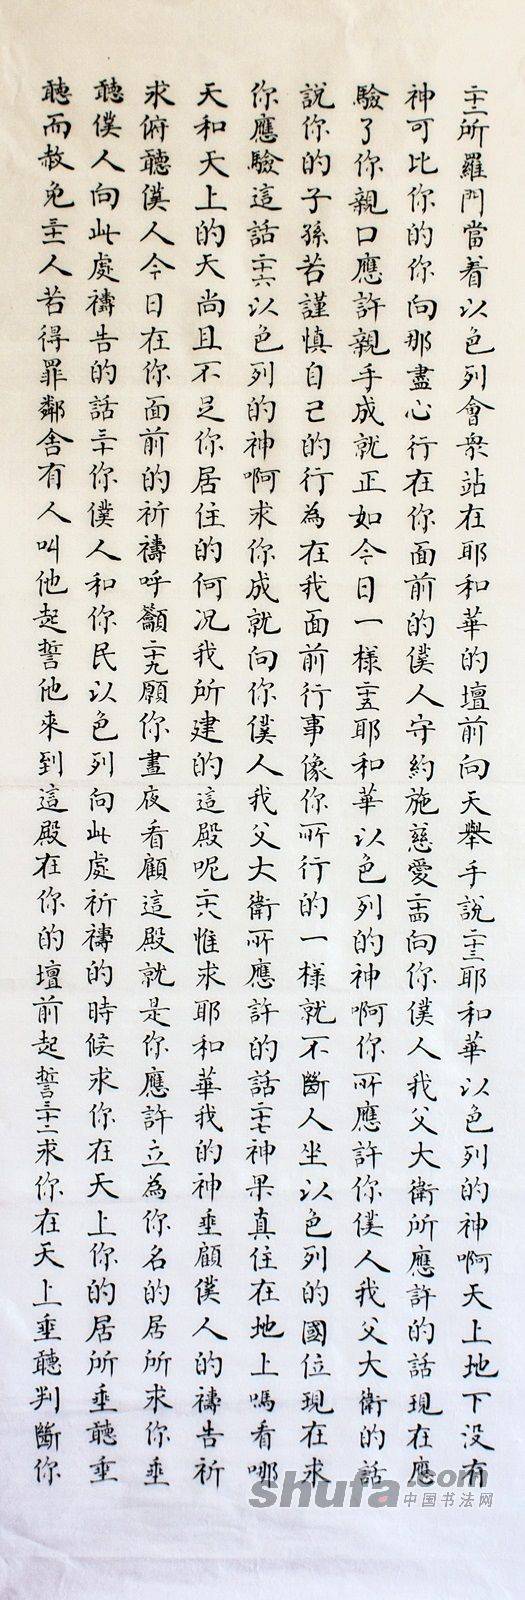 二十二所羅門當着以色列會衆站在耶和華的壇前向天舉手說二十三耶和華以色列的神啊天上地下没有
神可比你的你向那盡心行在你面前的僕人守約施慈愛二十四向你僕人我父大衛所應許的話現在應
驗了你親口應許親手成就正如今日一樣二十五耶和華以色列的神啊你所應許你僕人我父大衛的話
說你的子孫若謹慎自己的行為在我面前行事像你所行的一樣就不斷人坐以色列的國位現在求
你應驗這話二十六以色列的神啊求你成就向你僕人我父大衛所應許的話二十七神果真住在地上嗎看哪
天和天上的天尚且不足你居住的何况我所建的這殿呢二十八惟求耶和華我的神垂顧僕人的禱告祈
求俯聽僕人今日在你面前的祈禱呼籲二十九願你晝夜看顧這殿就是你應許立為你名的居所求你垂
聽僕人向此處禱告的話三十你僕人和你民以色列向此處祈禱的時候求你在天上你的居所垂聽垂
聽而赦免三十一人若得罪鄰舍有人叫他起誓他來到這殿在你的壇前起誓三十二求你在天上垂聽判斷你
shufa.com
中国书法网